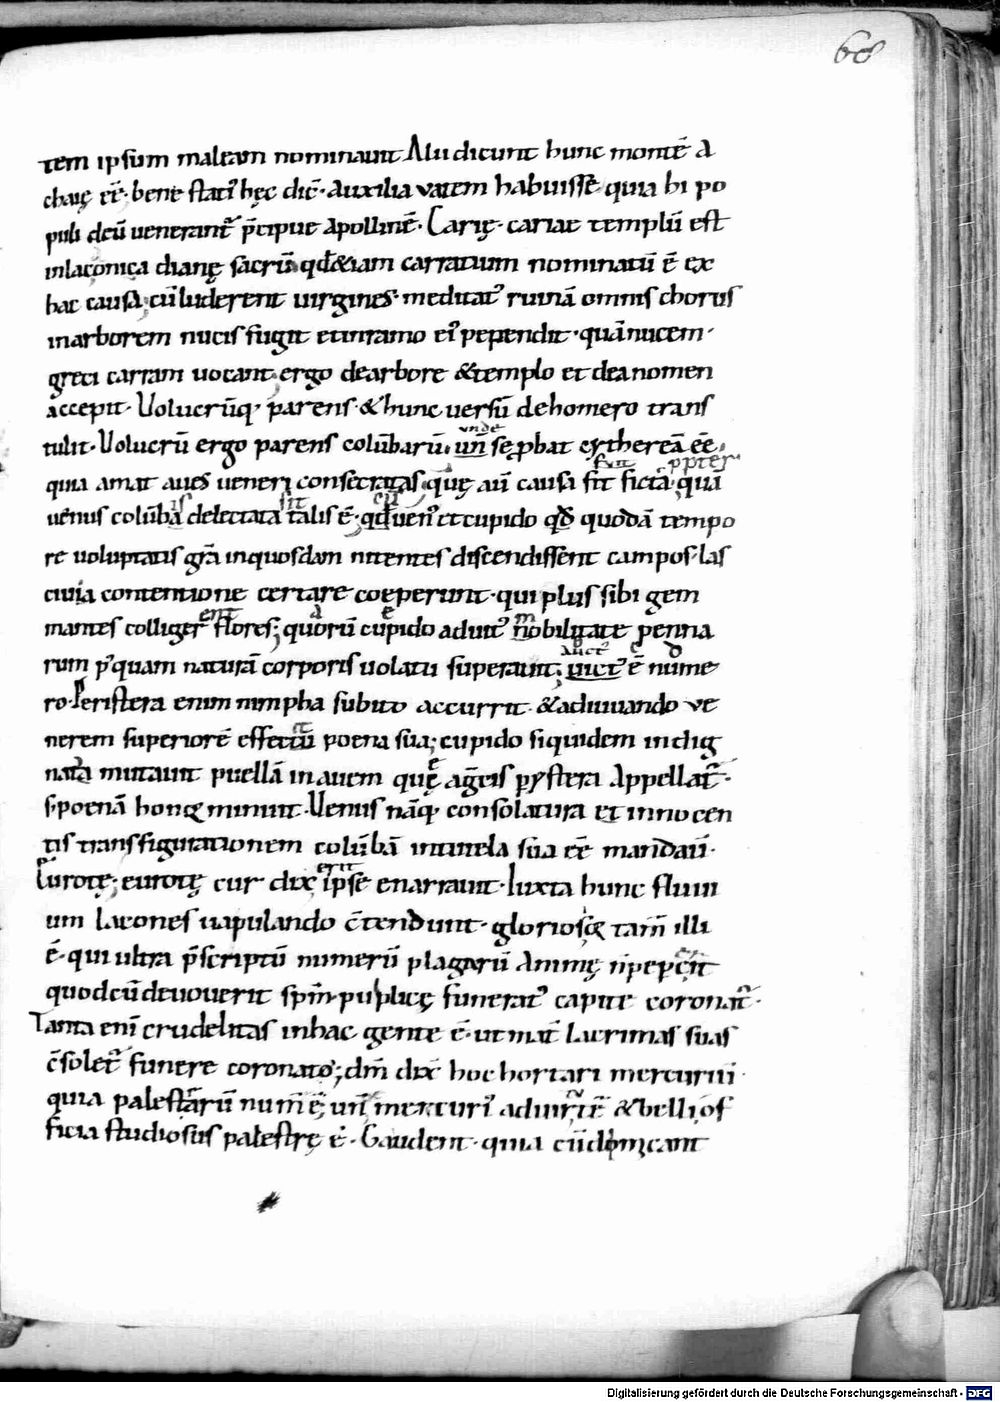 68
tem ipsum maleam nominauit Alii dicunt hunc montē A
chaię eē· bene statiˀ hęc dic̄· Auxilia vatem habuissē quia hi po
puli deū uenerant᷑ p̄cipue Apollinē· Carię· cariae templū est
inlaconica dianę sacrū qđ &iam carratium nominatū ē ex
hac causa; cū luderent uirgines· meditatˀ ruinā omnis chorus
inarborem nucis fugit et inramo eiˀ pependit· quā nucem·
greci carram uocant· ergo dearbore & templo et dea nomen
accepit· Volucrūq· parens· & hunc uersū dehomero trans
unde
tulit· Volucrū ergo parens colūbarū· un̄ se ꝓbat cythereā eē·
fuit ꝓpter
quia amat aues ueneri consecratas· quę aū causa sit ficta· quā
is sit cū
uenus colūba delectata talis ē· qđ uenˀ et cupido qđ quodā tempo
re uoluptatis gr̄a inquosdam nitentes discendissent campos· las
ciuia contentione certare coeperunt· qui plus sibi gem
ent d e m
mantes colligerˀ flores; quorū cupido adiutˀ nobilitate penna
uictˀ
rum p̄quam naturā corporis uolatu superauit; uictˀ ē nume
ro· Peristera enim nimpha subito accurrit· & adiuuando ve
nerem superiorē effectū poena sua; cupido siquidem indig
natā mutauit puellā in auem quę ag̅eis pystera Appellat᷑·
S; poenā honos minuit· Venus nāq· consolatura et innocen
tis transfigurationem colūbā intutela sua eē mandauī·
erit
Eurotę; eurotę cur dix̄ ipse enarrauit· Iuxta hunc fluui
um lacones uapulando c̄tendunt· gloriosꝗ tam̄ illi
ē· qui ultra p̄scriptū numerū plagarū
quodcū deuouerit sp̄m· puplicę funeratˀ capite coronat᷑·
Tanta eni crudelitas inhac gente ē· ut mat̄ lacrimas suas
c̄solet᷑ funere coronato; dm̄ dix̄ hoc hortari mercurii·
quia palestrarū num̄ ę un̄ mercuriˀ & belli of
ficia studiosus palestrę ē· Gaudent· quia